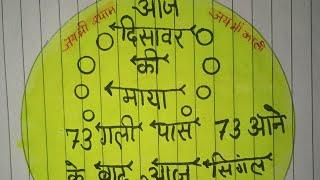 आज
जय श्री श्याम
जय माँ काली
दिसावर
की
माया
73 गली पास 73 आने
के बाद आज सिंगल